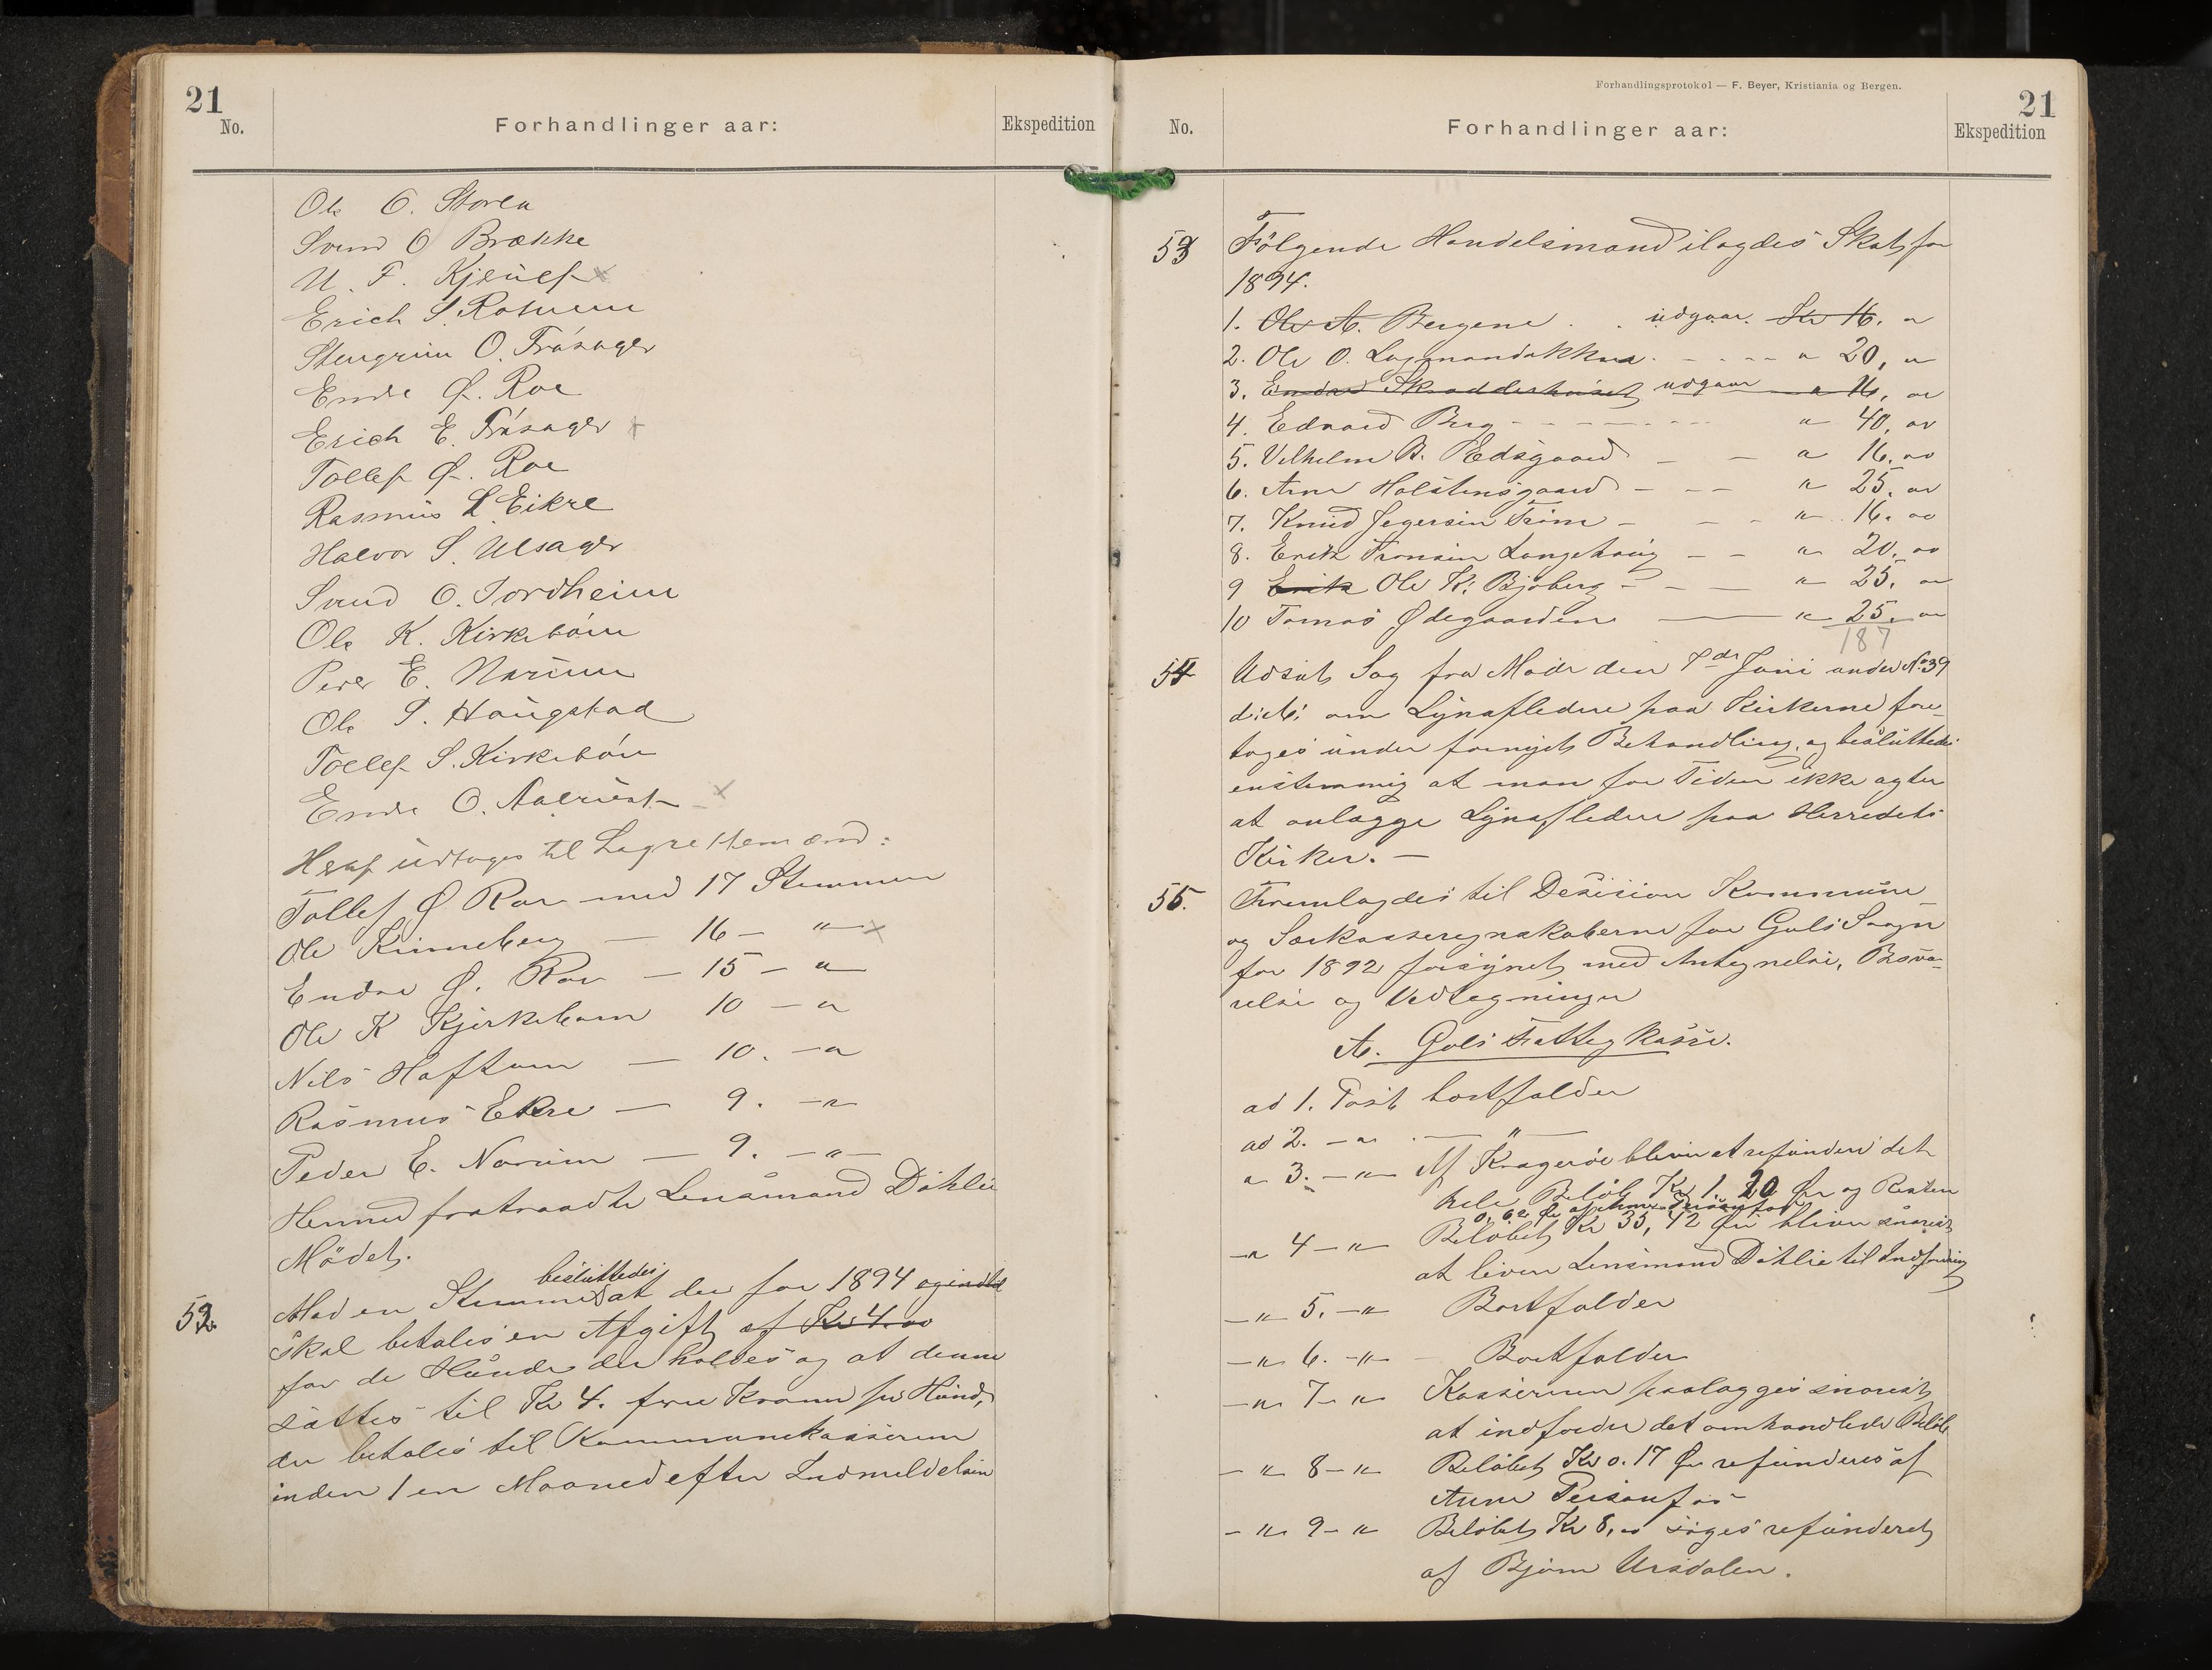 21
No.
Forhandlinger aar:
Ekspedition
Ole O. Storla
Svend O Brække
U. F. Kjeilef
Erich S. Rotnem
Stengrim O. Trøsager
Endr Ø. Roe
Erich E. Trøsager
Tollef Ø. Roe
Rasmus L Eikre
Halvor S. Ulsager
Svend O. Jordheim
Ole K. Kirkebøn
Peder E. Narum
Ole T. Haugstad
Tollef S. Kirkebøn
Endr O. Aalrust
Heraf udtages til Lagrettemænd:
Tollef Ø Roe med 17 Stemmer
Ole Kinneberg — 16 — "
Endre Ø. Roe — 15 — "
Ole K Kjirkeboen 10 — "
Nils Haftom — 10. — "
Rasmus Ekre — 9. — "
Peder E. Norum — 9. — " —
Hermed fratraadte Lensmand Døhlie
Mødet.
52. Mod en Stemme besluttedes at der for 1894 og indtil
skal betales en Afgift af Kr 4.00
for de Hunde der holdes og at denne
sattes til Kr 4. fire Kroner pr Hund,
der betales til Kommunekasseren
inden 1 en Maaned efter Indmeldelsen
Forhandlingsprotokol — F. Beyer, Kristiania og Bergen.
21
No.
Forhandlinger aar:
Ekspedition
53 Følgende Handelsmænd ilagdes Skat for
1894.
1. Ole A. Bergene . . udgaar. Kr 16. "
2. Ole O. Lagmandsokken. - - - - " 20, "
3. Endre Skradderhuset udgaar " 16, 00
4. Edvard Berg - - - - - - - " 40, 00
5. Vilhelm B. Edsgaard — — " 16, 00
6. Arne Halstensgaard — — — " 25. 00
7. Knud Jegersen Trøim — — - " 16. 00
8. Erik Tronsen Langehaug — — " 20, 00
9 Erik Ole K. Bjøberg — — — " 25. 00
10 Tomas Ødegaarden — " 25. 00
187
54 Udsat Sag fra Møde den 7de Juni under No 39
d: A: om Lynafledere paa Kirkerne fore-
toges under fornyet Behandling, og besluttedes
enstemmig at man for Tiden ikke agter
at anlægge Lynafledere paa Herredets
Kirker. —
55. Fremlagdes til Desision Kommune-
og Særkasseregnskaberne for Gols Sogn
for 1892 forsynet med Antegnelse, Besva-
relse og Vedtegninger
A. Gols Fattigkasse.
ad 1. Post bortfalder
ad 2. — " . — " —
" 3. — " — Af Kragerøe bliver at refundere det
hele Beløb Kr 1. 20 Øre og Resten
0,62 Øre af Arne Peisanfos
— " 4 — " — Beløbet Kr 35, 42 Øre bliver snarest
at levere Lensmand Døhlie til Indfordring
— " 5. — " Bortfalder
— " 6. — " — Bortfalder
— " 7 — " Kassereren paalægges snarest
at indfordre det omhandlede Beløb
— " 8 — " Beløbet Kr 0.17 Øre refunderes af
Arne Peisanfos
— " 9 — " Beløbet Kr 8,00 søges refunderet
af Bjørn Ursdalen.